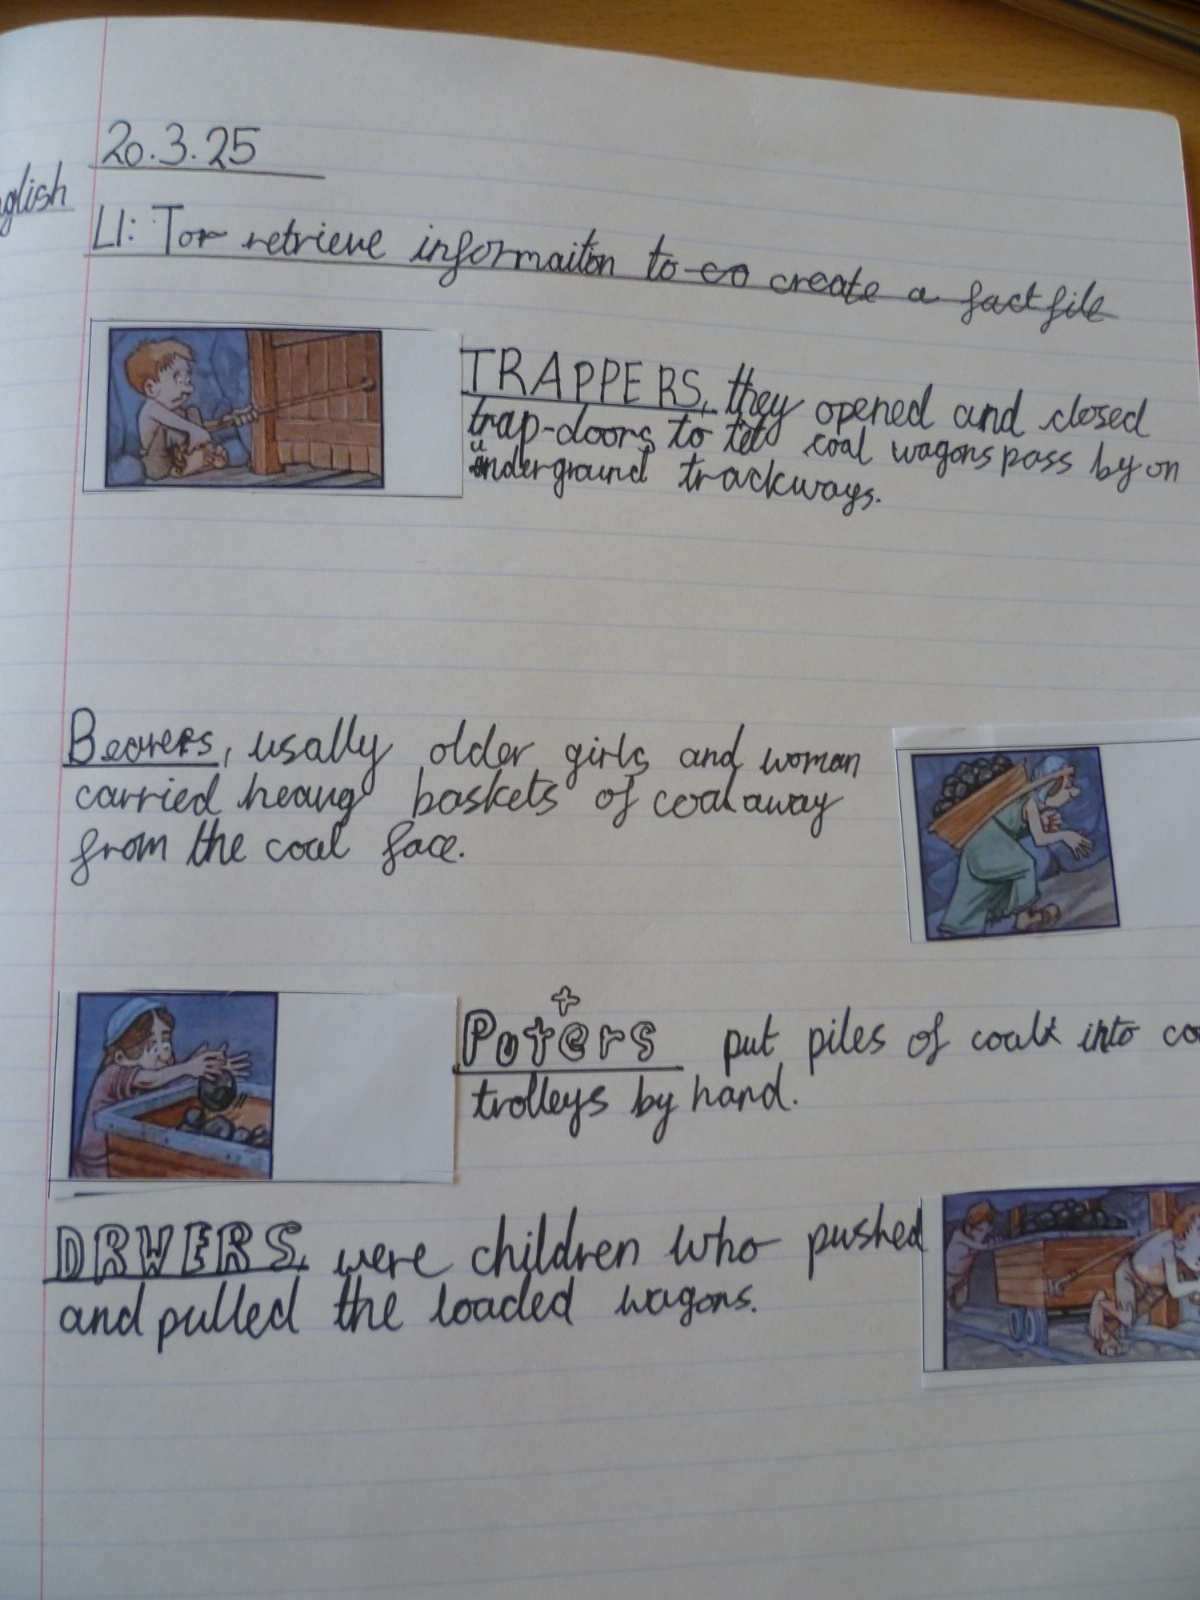 20.3.25
nglish
LI: To retrieve informaiton to create a fact file
TRAPPERS, they opened and closed
trap-doors to let coal wagons pass by on
underground trackways.
Bearers, usally older girls and woman
carried heavy baskets of coal away
from the coal face.
Putters put piles of coal into co
trolleys by hand.
DRWERS, were children who pushed
and pulled the loaded wagons.